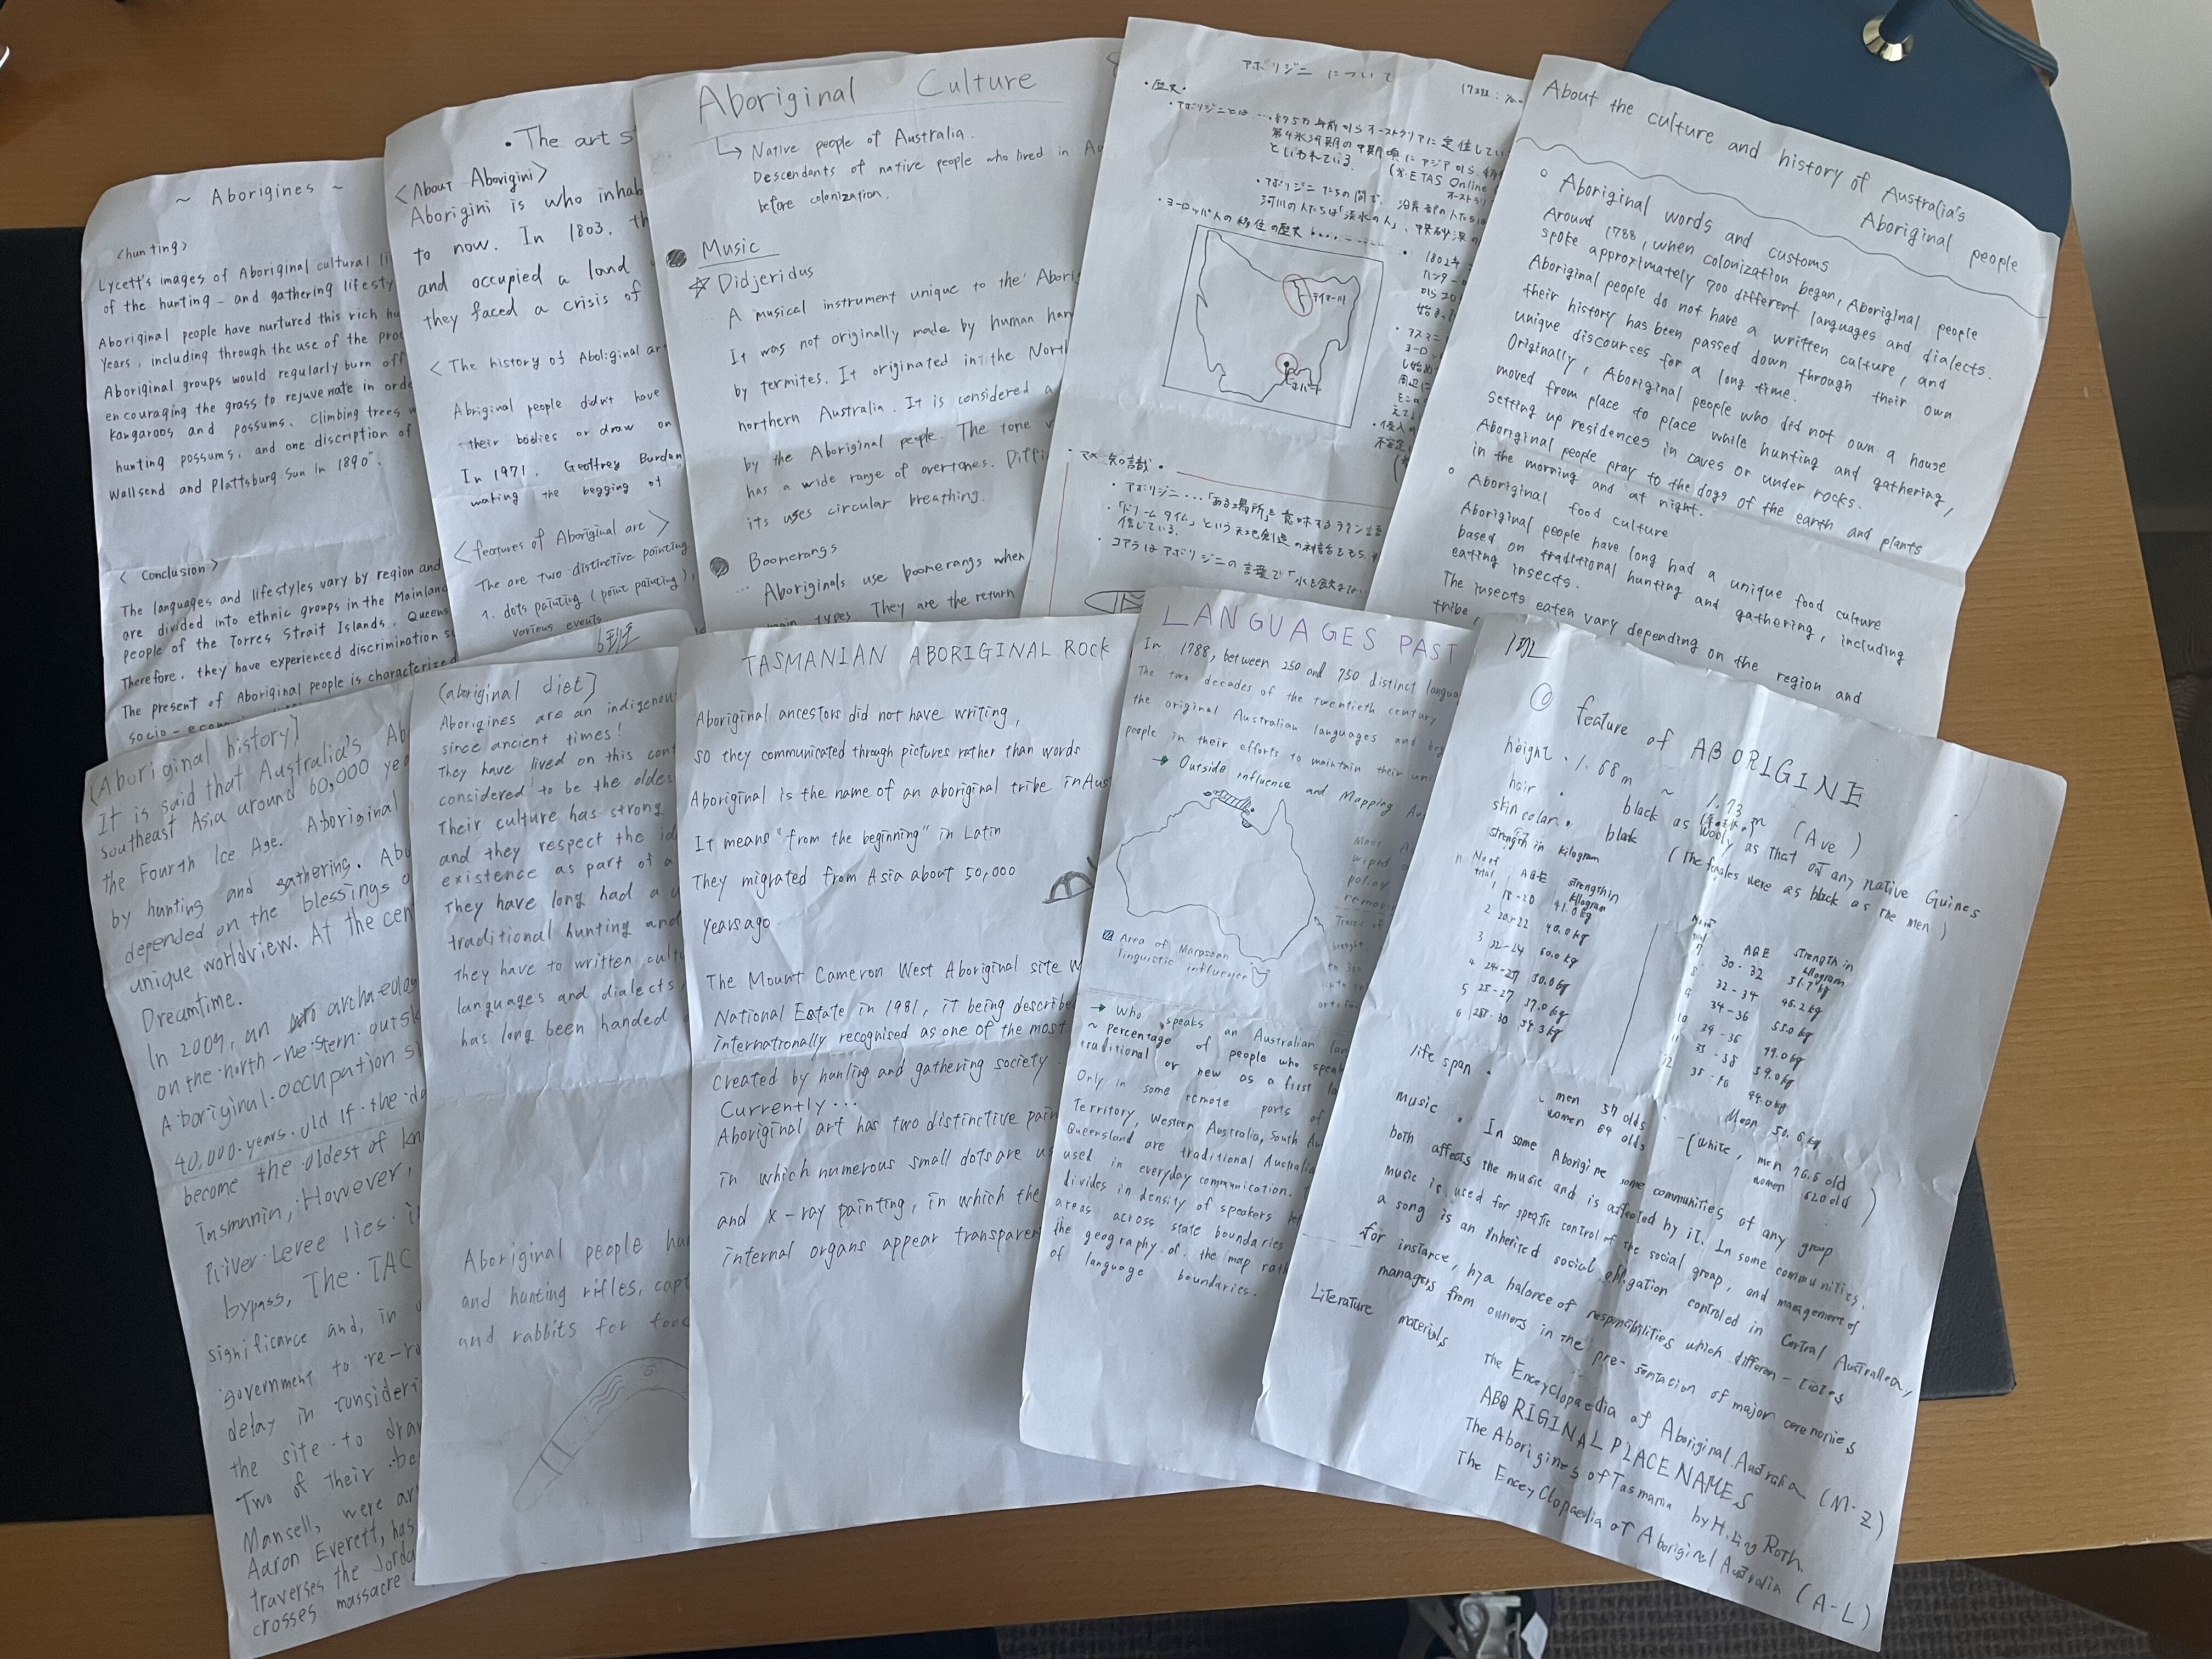 ~ Aborigines ~
<hunting>
Lycett's images of Aboriginal cultural li
of the hunting - and gathering lifesty
Aboriginal people have nurtured this rich hu
Years, including through the use of the proc
Aboriginal groups would regularly burn off
encouraging the grass to rejuvenate in orde
Kangaroos and possums. Climbing trees w
hunting possums, and one discription of
Wallsend and Plattsburg Sun in 1890".
< Conclusion >
The languages and lifestyles vary by region and
are divided into ethnic groups in the Mainland
people of the Torres Strait Islands, Queens
Therefore, they have experienced discrimination s
The present of Aboriginal people is characterized
socio-econ
• The art s
<About Aborigini>
Aborigini is who inhab
to now. In 1803, th
and occupied a land
they faced a crisis of
< The history of Aboliginal ar
Abriginal people didn't have
their bodies or draw on
In 1971, Geoffrey Bardon
making the begging of
<features of Aboriginal are >
The are two distinctive painting
1. dots painting ( point painting),
various events
Aboriginal Culture
↳ Native people of Australia.
Descendants of native people who lived in Au
before colonization.
● Music
☆ Didjeridus
... A musical instrument unique to the Abori
It was not originally made by human han
by termites. It originated in the North
northern Australia. It is considered a
by the Aboriginal people. The tone v
has a wide range of overtones. Diffi
its uses circular breathing.
● Boomerangs
... Aboriginals use boomerangs when
main types They are the return
アボリジニ について
・歴史・
・アボリジニとは …・約5万年前からオーストラリアに定住してい
第4氷河期の中期頃にアジアから
といわれている.
(※ETAS Online
・アボリジニたちの間で、沿岸部の人たちは
河川の人たちは「淡水の人」、中央砂漠の
・ヨーロッパ人の移住の歴史
・1802年
テイマー川
ホバート
・タスマニ
ヨーロッ
し始め
周辺に
・侵入の
不安定
・マメ知識・
・アボリジニ…「ある場所」を意味するラテン語
・「ドリームタイム」という天地創造の神話をもち、
信じている.
・コアラはアボリジニの言葉で「水を飲まない
About the culture and history of Australia's
Aboriginal people
○ Aboriginal words and customs
Around 1788, when colonization began, Aboriginal people
spoke approximately 700 different languages and dialects.
Aboriginal people do not have a written culture, and
their history has been passed down through their own
unique discourses for a long time.
Originally, Aboriginal people who did not own a house
moved from place to place while hunting and gathering,
setting up residences in caves or under rocks.
Aboriginal people pray to the dogs of the earth and plants
in the morning and at night.
○ Aboriginal food culture
Aboriginal people have long had a unique food culture
based on traditional hunting and gathering, including
eating insects.
The insects eaten vary depending on the region and
tribe,
(Aboriginal history)
It is said that Australia's Ab
Southeast Asia around 60,000 ye
the Fourth Ice Age. Aboriginal
by hunting and gathering. Abo
depended on the blessings o
unique worldview. At the cent
Dreamtime.
In 2009, an archaeolog
on the north-western outsk
Aboriginal occupation si
40,000 years old If the da
become the oldest of kn
Tasmania, However,
River Levee lies i
bypass, The TAC
significance and, in
government to re-ro
delay in consideri
the site to dra
Two of their be
Mansell, were ar
Aaron Everett, has
traverses the Jorda
crosses massacre
6班
(aboriginal diet)
Aborigines are an indigenou
since ancient times!
They have lived on this cont
considered to be the oldes
Their culture has strong
and they respect the id
existence as part of a
They have long had a u
traditional hunting and
They have to written cult
languages and dialects,
has long been handed
Aboriginal people hu
and hunting rifles, capt
and rabbits for food
TASMANIAN ABORIGINAL ROCK
Aboriginal ancestors did not have writing,
so they communicated through pictures rather than words
Aboriginal is the name of an aboriginal tribe in Aus
It means "from the beginning" in Latin
They migrated from Asia about 50,000
years ago
The Mount Cameron West Aboriginal site w
National Estate in 1981, it being describe
internationally recognised as one of the most
Created by hunting and gathering society.
Currently...
Aboriginal art has two distinctive pain
in which numerous small dots are us
and x-ray painting, in which the
internal organs appear transparen
LANGUAGES PAST
In 1788, between 250 and 750 distinct langua
The two decades of the twentieth century
the original Australian languages and beg
people in their efforts to maintain their uni
→ Outside influence and Mapping Au
Most A
wiped o
policy
remov
Traces of
brought
to 300
artefac
Area of Marassan
linguistic influence
→ Who speaks an Australian lan
~ percentage of people who speak
traditional or new as a first la
Only in some remote parts of
Territory, Western Australia, South Au
Queensland are traditional Australia
used in everyday communication.
divides in density of speakers be
areas across state boundaries
the geography of the map rath
of language boundaries.
1班
◎ feature of ABORIGINE
height • 1.68m ~ 1.73 m (Ave)
hair • black as wooly as that of any native Guines
skin colar • black (The females were as black as the men)
strength in kilogram
No of trial AGE strength in kilogram
1 18-20 41.0kg
2 20-22 40.0kg
3 22-24 60.0kg
4 24-25 50.0kg
5 25-27 57.0kg
6 28-30 59.3kg
No of trial AGE strength in kilogram
7 30-32 51.7kg
8 32-34 46.2kg
9 34-36 55.0kg
10 34-36 49.0kg
11 35-38 59.0kg
12 49.0kg
Mean 50.6kg
life span • men 57 olds
women 64 olds
(white, men 76.6 old
women 82.0 old)
music • In some Aborigine some communities of any group
both affects the music and is affected by it. In some communities.
music is used for specific control of the social group, and management of
a song is an inherited social obligation controled in Central Australlea,
for instance, by a balance of responsibilities which different-tiates
managers from owners in the pre-sentation of major ceremonies
Literature materials
The Encyclopaedia of Aboriginal Australia (M-Z)
ABORIGINAL PLACE NAMES
The Aborigines of Tasmania by H.Ling Roth
The EncyClopaedia of Aboriginal Australia (A-L)